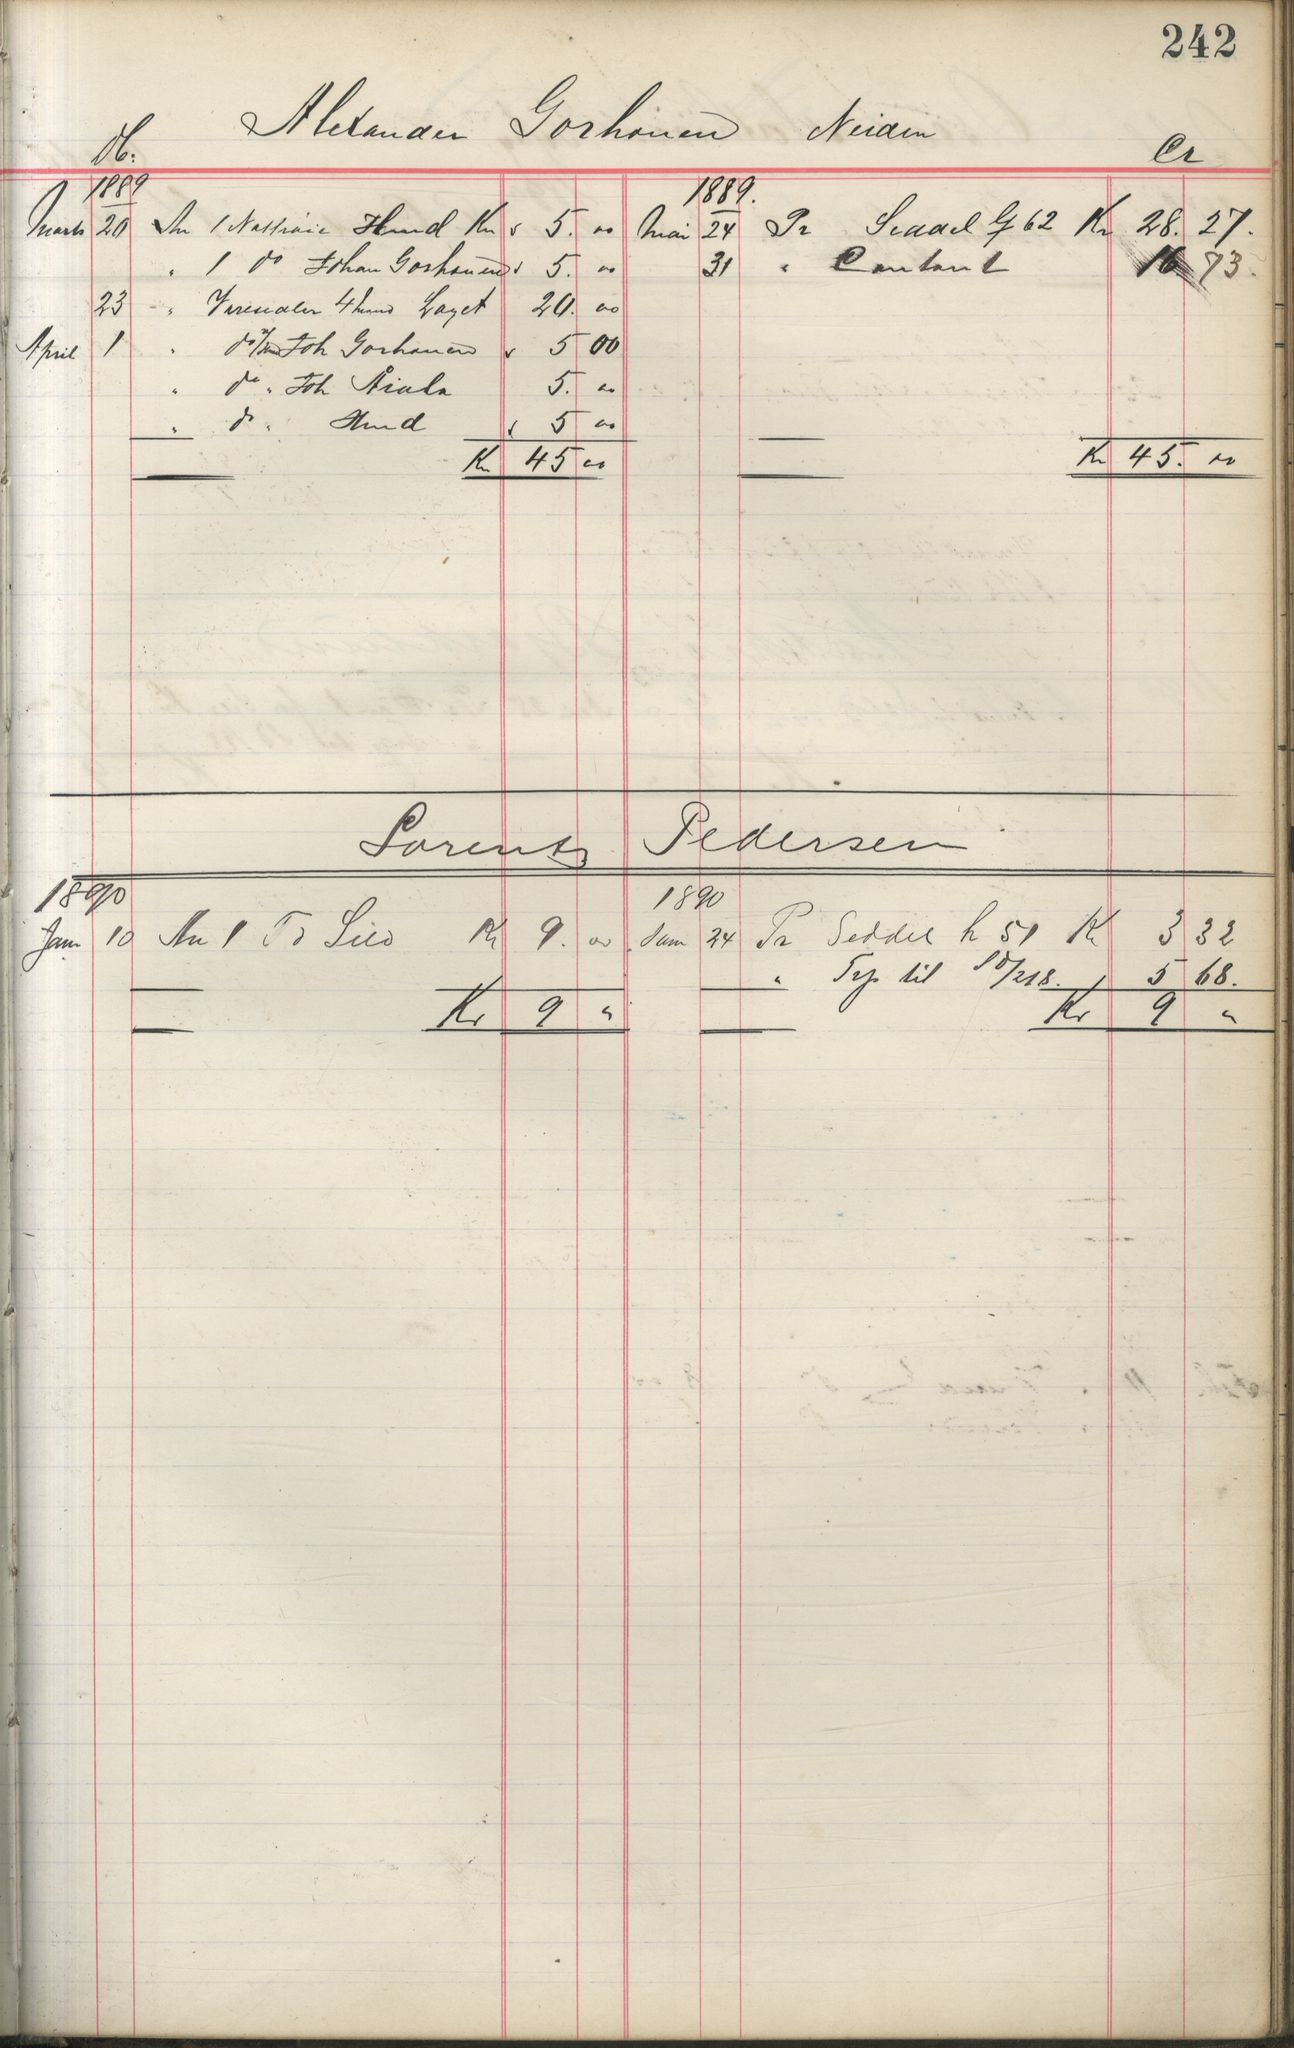 242
Alexander Gorhonen Neiden
Db. Cr
1889 1889.
Marts 20 An 1 Hund Kr 5. 00 Mai 24 Pr Seddel G 62 Kr 28. 27.
" 1 do Johan Gorhonen 5. 00 31 " Contant 16 73.
23 " 4 hund Laget 20. 00
April 1 " do Joh Gorhonen 5 00
" do " Joh 5. 00
" do " Hund 5 00
Kr 45 00 Kr 45. 00
Lorentz Pedersen
1890 1890
Jan 10 An 1 Td Kr 9. 00 Jan 24 Pr Seddel h 51 Kr 3 32
" til 10/218. 5 68.
Kr 9 " Kr 9 "